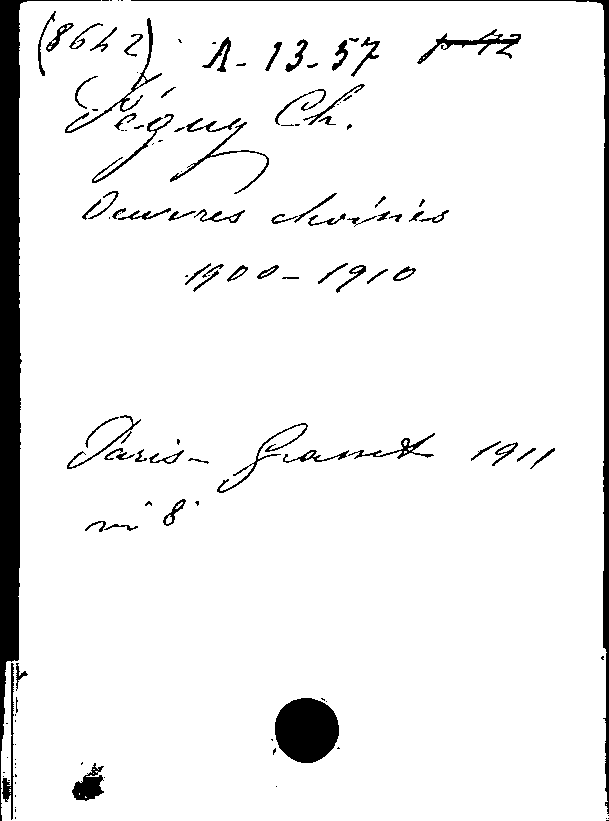 (8642) A-13-57
Péguy Ch.
Oeuvres choisies
1900-1910
Paris- Grasset 1911
in 8°